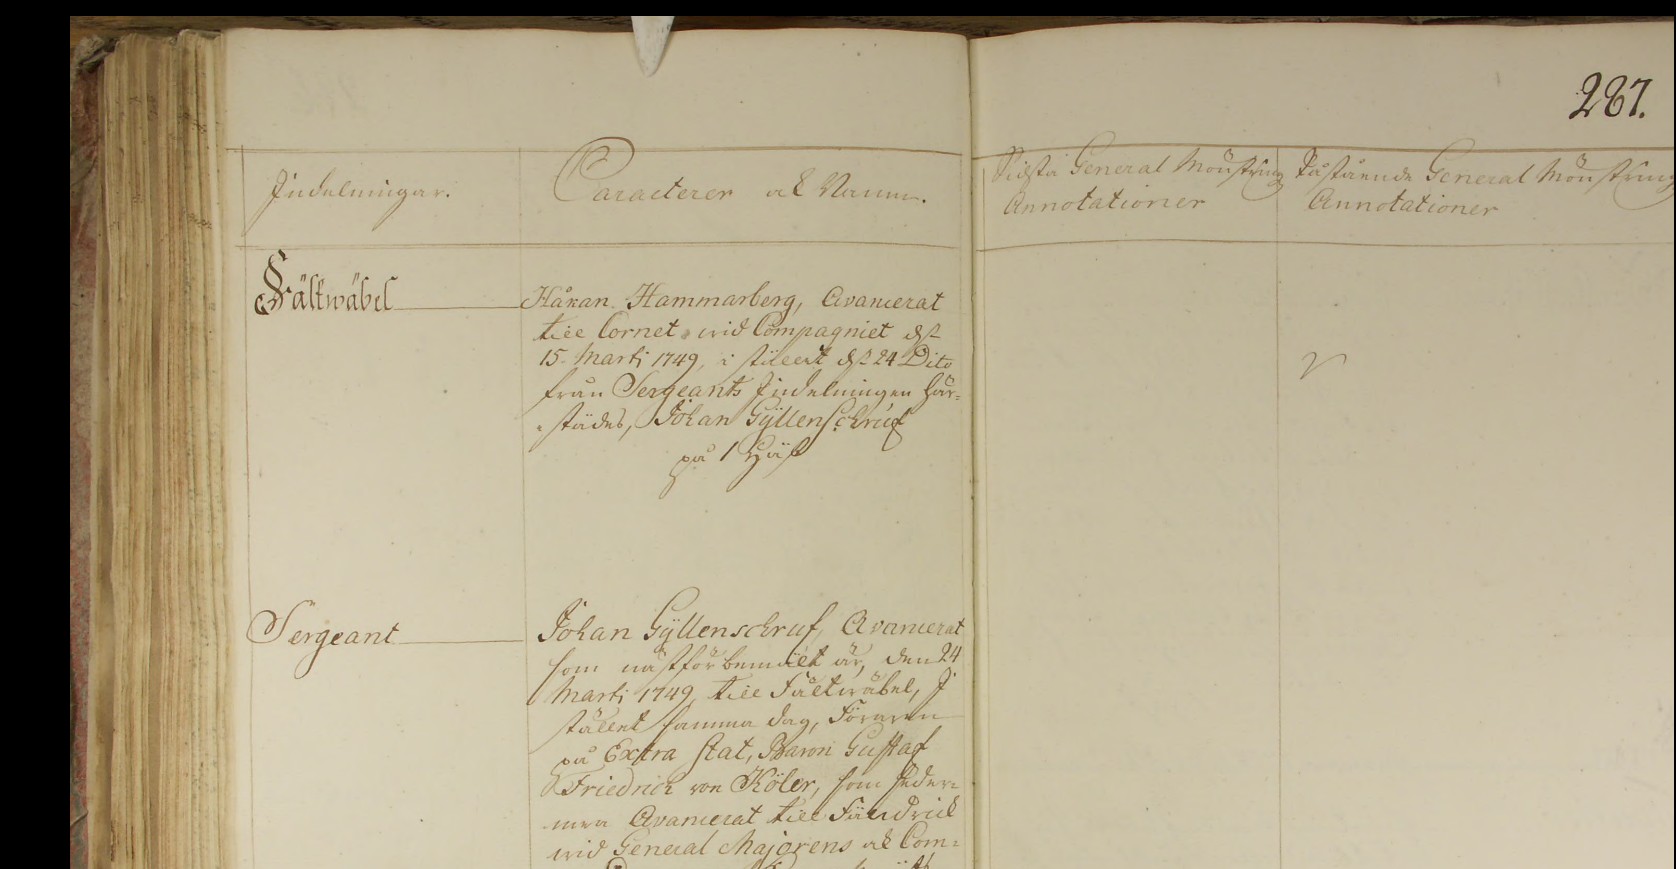 287.
Indelningar.
Caracterer ock Namn.
Sidsta General Mönstring
Annotationer
Påstående General Mönstring
Annotationer
Fältwäbel
Håkan Hammarberg, Avancerat
till Cornet wid Compagniet dȩn
15. Marti 1749, i stället dȩn 24 Dito
från Sergeants Indelningen här-
städes, Johan Gÿllenschruf
på 1 Häst
Sergeant
Johan Gÿllenschruf, Avancerat
som nästförbemält är, den 24
Marti 1749, till Fältwäbel, I
stället samma dag, Föraren
på Extra stat, Baron Gustaf
Friedrich von Köler, som seder-
mera Avancerat till Fändrick
wid General Majorens ock Com-